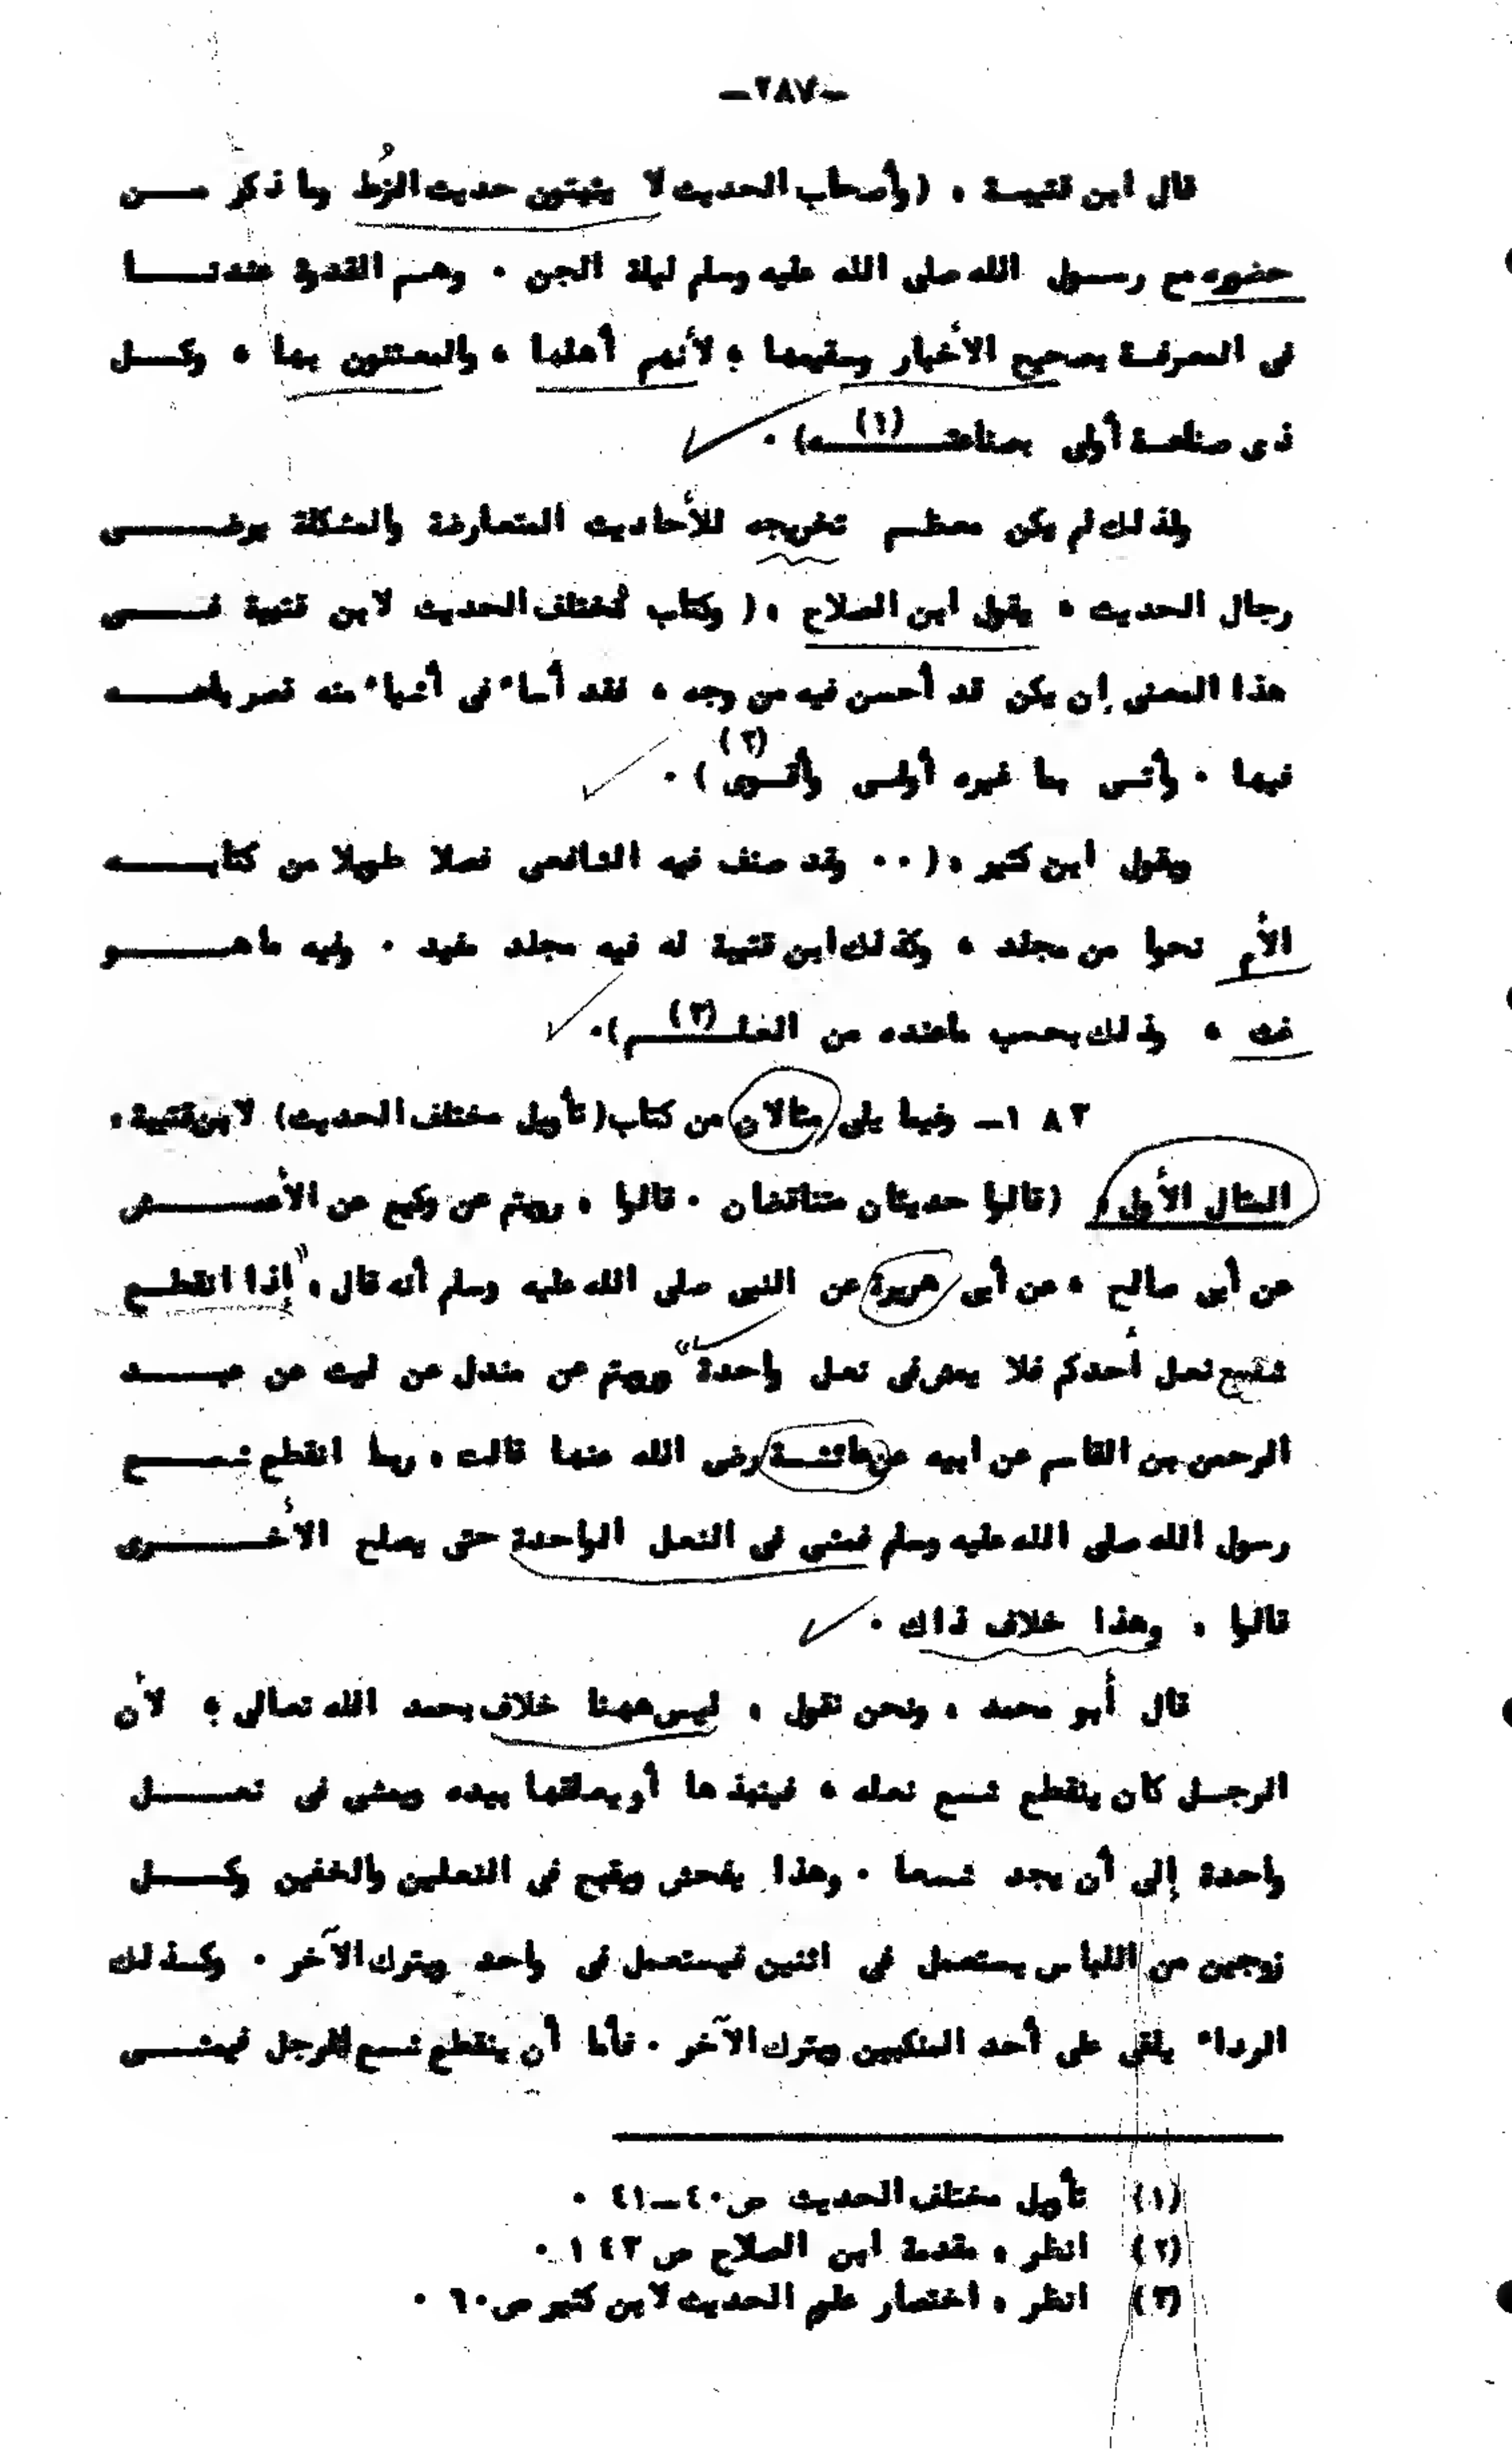 -٢٨٧-
قال ابن قتيبة ، (وأصحاب الحديث لا يثبتون حديث الزُط وما ذكر من
حضوره مع رسول الله صلى الله عليه وسلم ليلة الجن . وهم القدوة عندنا
فى المعرفة بصحيح الأخبار وسقيمها ؛ لأنهم أهلها ، والمعتنون بها ، وكل
ذى صناعة أولى بصناعته) (١) .
ولذلك لم يكن معظم تخريجه للأحاديث المتعارضة والمشكلة يرضى
رجال الحديث ، يقول ابن الصلاح ، ( وكتاب مختلف الحديث لابن قتيبة فى
هذا المعنى إن يكن قد أحسن فيه من وجه ، فقد أساء فى أشياء منه قصر باعه
فيها . وأتى بما غيره أولى وأقوى ) (٢) .
ويقول ابن كثير ، ( . . وقد صنف فيه الشافعى فصلا طويلا من كتابه
الأم نحوا من مجلد ، وكذلك ابن قتيبة له فيه مجلد مفيد . وفيه ما هو
غث ، وذلك بحسب ماعنده من العلم) (٣) .
١٨٢ - وفيما يلى مثالان من كتاب (تأويل مختلف الحديث) لابن قتيبة ،
المثال الأول ، (قالوا حديثان متناقضان . قالوا ، رويتم عن وكيع عن الأعمش
عن أبى صالح ، عن أبى هريرة عن النبى صلى الله عليه وسلم أنه قال ، "إذا انقطع
شسع نعل أحدكم فلا يمش فى نعل واحدة" ورويتم عن مندل عن ليث عن عبد
الرحمن بن القاسم عن ابيه عن عائشة رضى الله عنها قالت ، ربما انقطع شسع
رسول الله صلى الله عليه وسلم فمشى فى النعل الواحدة حتى يصلح الأخرى
قالوا ، وهذا خلاف ذاك .
قال أبو محمد ، ونحن نقول ، ليس ههنا خلاف بحمد الله تعالى ؛ لأن
الرجل كان ينقطع شسع نعله ، فينبذها أو يعلقها بيده ويمشى فى نعل
واحدة إلى أن يجد شسعا . وهذا يفحش ويقبح فى النعلين والخفين وكل
زوجين من اللباس يستعمل فى اثنين فيستعمل فى واحد ويترك الآخر . وكذلك
الرداء يلقى على أحد المنكبين ويترك الآخر . فأما أن ينقطع شسع الرجل فيمشى
(١) تأويل مختلف الحديث ص ٤٠-٤١ .
(٢) انظر ، مقدمة ابن الصلاح ص ١٤٣ .
(٣) انظر ، اختصار علوم الحديث لابن كثير ص ٦٠ .